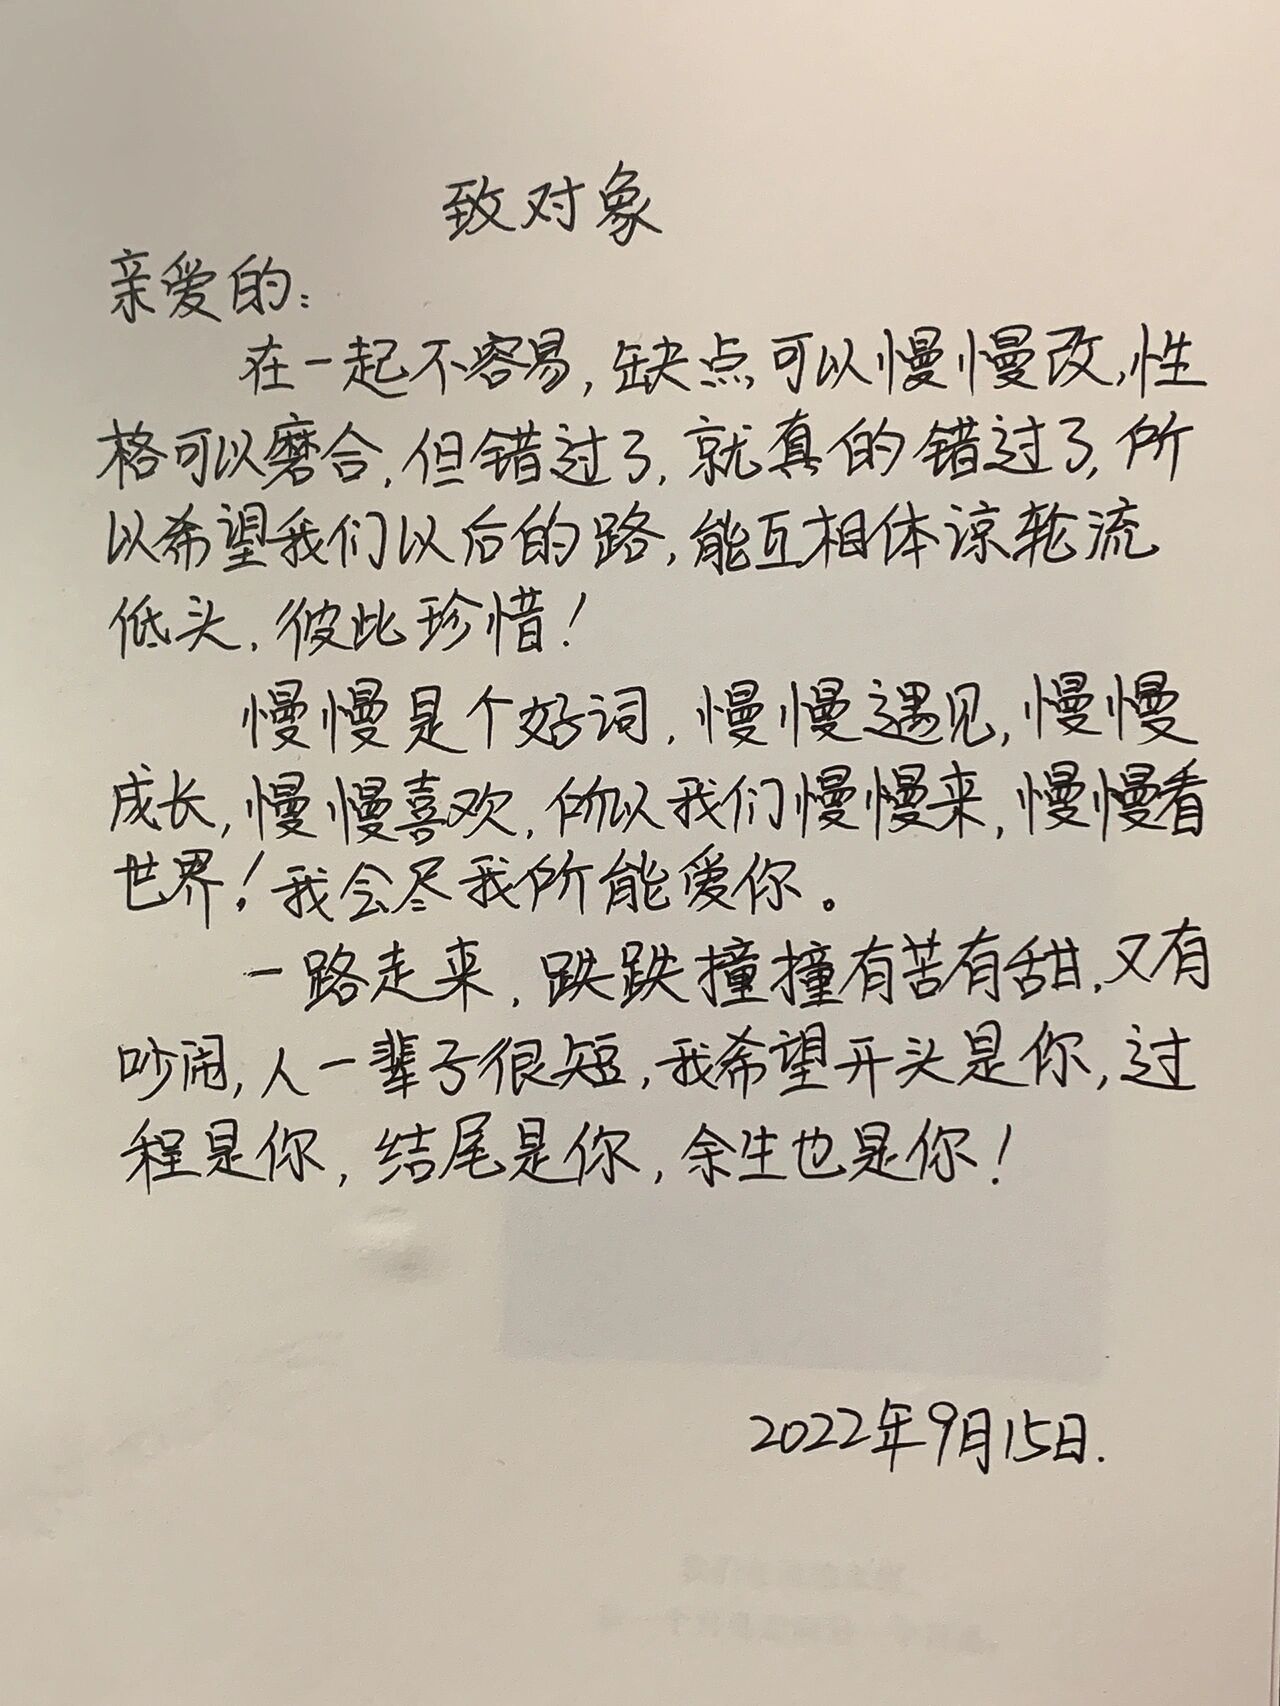 致对象
亲爱的：
在一起不容易,缺点可以慢慢改,性
格可以磨合,但错过了,就真的错过了,所
以希望我们以后的路,能互相体谅轮流
低头,彼此珍惜!
慢慢是个好词,慢慢遇见,慢慢
成长,慢慢喜欢,所以我们慢慢来,慢慢看
世界!我会尽我所能爱你。
一路走来,跌跌撞撞有苦有甜,又有
吵闹,人一辈子很短,我希望开头是你,过
程是你,结尾是你,余生也是你!
2022年9月15日.